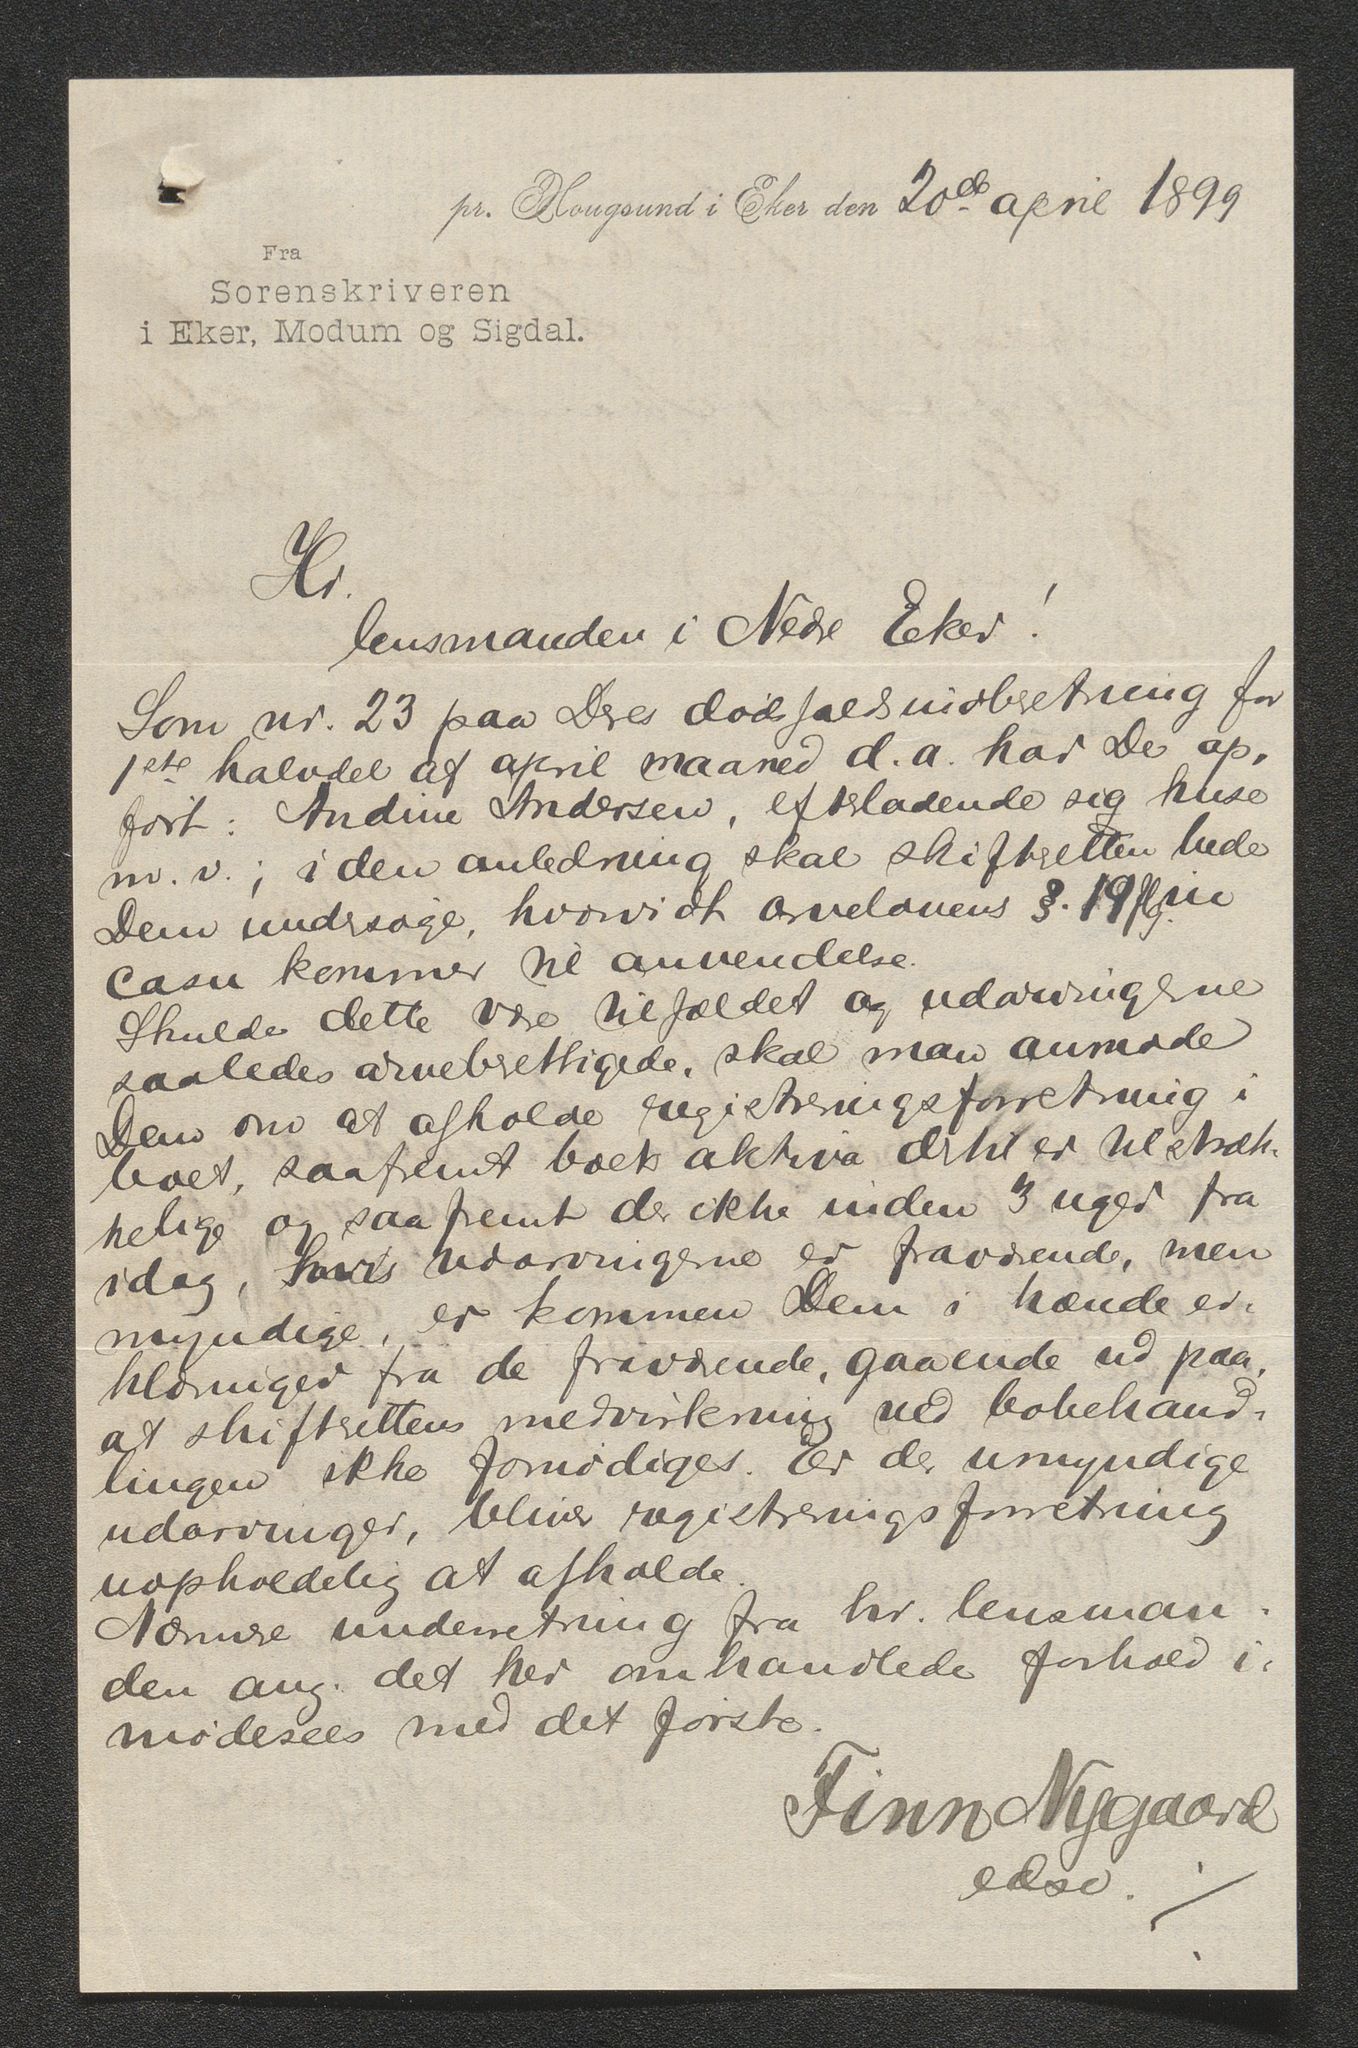 pr. Hougsund i Eker den 20de april 1899
Fra
Sorenskriveren
i Eker, Modum og Sigdal.
Hr.
lensmanden i Nedre Eker!
Som nr. 23 paa Deres dødsfaldsindberetning for
1ste halvdel af april maaned d.a. har De op-
ført: Andine Andersen, efterladende sig huse
m. v.; i den anledning skal skifteretten bede
Dem undersøge, hvorvidt arvelovens §. 19 flg. in
casu kommer til anvendelse.
Skulde dette være tilfældet og udarvingerne
saaledes arveberettigede, skal man anmode
Dem om at afholde registreringsforretning i
boet, saafremt boets aktiva dertil er tilstræk-
kelige og saafremt der ikke inden 3 uger fra
idag, hvis udarvingerne er fraværende, men
myndige, er kommen Dem i hænde er-
klæringer fra de fraværende, gaaende ud paa,
at skifterettens medvirkning ved bobehand-
lingen ikke fornødiges. Er der umyndige
udarvinger, bliver registreringsforretning
uopholdelig at afholde.
Nærmere underretning fra hr. lensman-
den ang. det her omhandlede forhold i-
mødesees med det første.
Finn Nygaard
edsv.